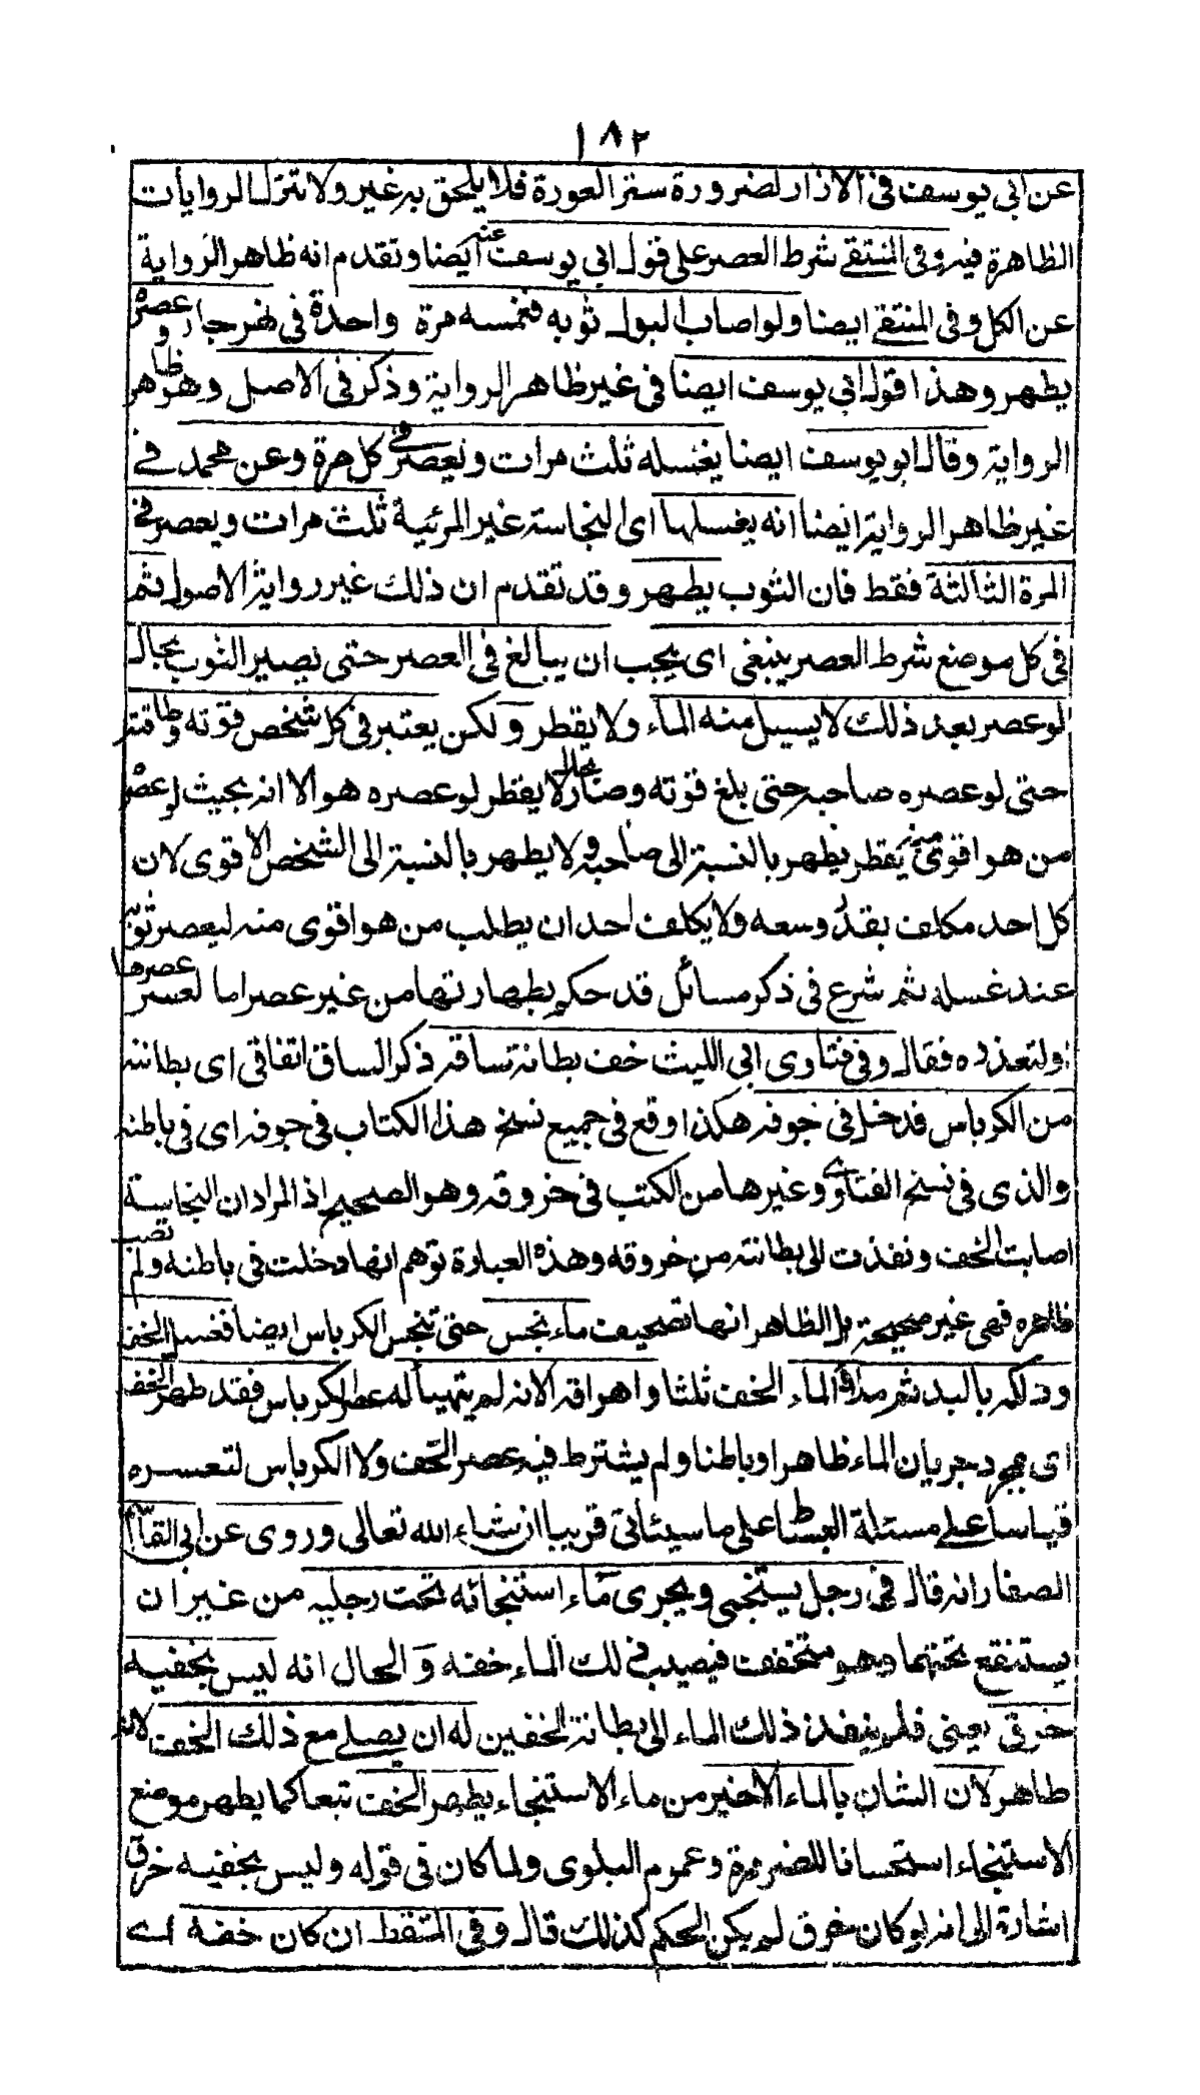 ١٨٢
عن ابى يوسف فى الازار لضرورة ستر العورة فلا يلحق به غيره ولا تترك الروايات
الظاهرة فيه وفى المنتقے شرط العصر على قول ابى يوسف عنه ايضا وتقدم انه ظاهر الرواية
عن الكل وفى المنتقے ايضا ولو اصاب البول ثوبه فغمسه مرة واحدة فى نهر جار وعصره
يطهر وهذا قول ابى يوسف ايضا فى غير ظاهر الرواية وذكر فى الاصل وهو ظاهر
الرواية وقال ابو يوسف ايضا يغسله ثلث مرات ويعصر فى كل مرة وعن محمد فے
غير ظاهر الرواية ايضا انه يغسلها اى النجاسة غير المرئية ثلث مرات ويعصر فى
المرة الثالثة فقط فان الثوب يطهر وقد تقدم ان ذلك غير رواية الاصول ثم
فى كل موضع شرط العصر ينبغى اى يجب ان يبالغ فى العصر حتى يصير الثوب بحال
لو عصر بعد ذلك لا يسيل منه الماء ولا يقطر ولكن يعتبر فى كل شخص قوته وطاقته
حتى لو عصره صاحبه حتى بلغ قوته وصار بحال لا يقطر لو عصره هو الا انه بحيث لو عصره
من هو اقوى منه يقطر يطهر بالنسبة الى صاحبه ولا يطهر بالنسبة الى الشخص الاقوى لان
كل احد مكلف بقدر وسعه ولا يكلف احد ان يطلب من هو اقوى منه ليعصر ثوبه
عند غسله ثم شرع فى ذكر مسائل قد حكم بطهارتها من غير عصر اما لعسر عصرها
او لتعذره فقال وفى فتاوى ابى الليث خف بطانة ساقه ذكر الساق اتفاقى اى بطانته
من الكرباس فدخل فى جوفه هكذا وقع فى جميع نسخ هذا الكتاب فى جوفه اى فى باطنه
والذى فى نسخ الفتاوے وغيرها من الكتب فى خروقه وهو الصحيح اذ المراد ان النجاسة
اصابت الخف ونفذت الى بطانته من خروقه وهذه العبارة توهم انها دخلت فى باطنه ولم تصب
ظاهره فهى غير صحيحة بل الظاهر انها تصحيف ماء نجس حتى تنجس الكرباس ايضا فغسل الخف
ودلكه باليد ثم ملاء الماء الخف ثلثا واهراقه الا انه لم يتهيأ له عصر الكرباس فقد طهر الخف
اى بمجرد جريان الماء ظاهرا وباطنا ولم يشترط فيه عصر الخف ولا الكرباس لتعسره
قياسا علے مسئلة البساط على ما سيئاتى قريبا ان شاء الله تعالى وروى عن ابى القاسم
الصفار انه قال فى رجل يستنجى ويجرى ماء استنجائه تحت رجليه من غير ان
يستنقع تحتهما وهو متخفف فيصيب ذلك الماء خفه و الحال انه ليس بخفيه
خرق يعنى فلم ينفذ ذلك الماء الى بطانة الخفين له ان يصلے مع ذلك الخف لانه
طاهر لان الشان بالماء الاخير من ماء الاستنجاء يطهر الخف تبعا كما يطهر موضع
الاستنجاء استحسانا للضرورة وعموم البلوى ولما كان فى قوله وليس بخفيه خرق
اشارة الى انه لو كان خرق لم يكن الحكم كذلك قال وفى الملتقط ان كان خفه اے